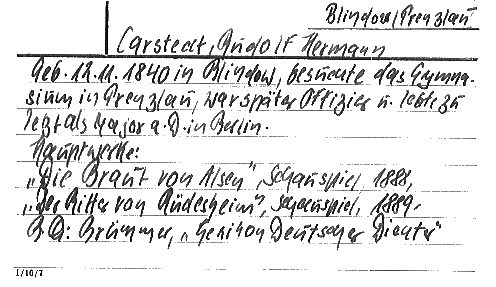 Blindow/Prenzlau
Carstedt, Rudolf Hermann
Geb. 12.11.1840 in Blindow, besuchte das Gymna-
sium in Prenzlau, war später Offizier u. lebte zu
letzt als Major a.D. in Berlin.
Hauptwerke:
„Die Braut von Alsen", Schauspiel, 1888,
„Der Ritter von Rüdesheim", Schauspiel, 1889.
BQ: Brümmer, „Lexikon Deutscher Dichter"
1/16/7